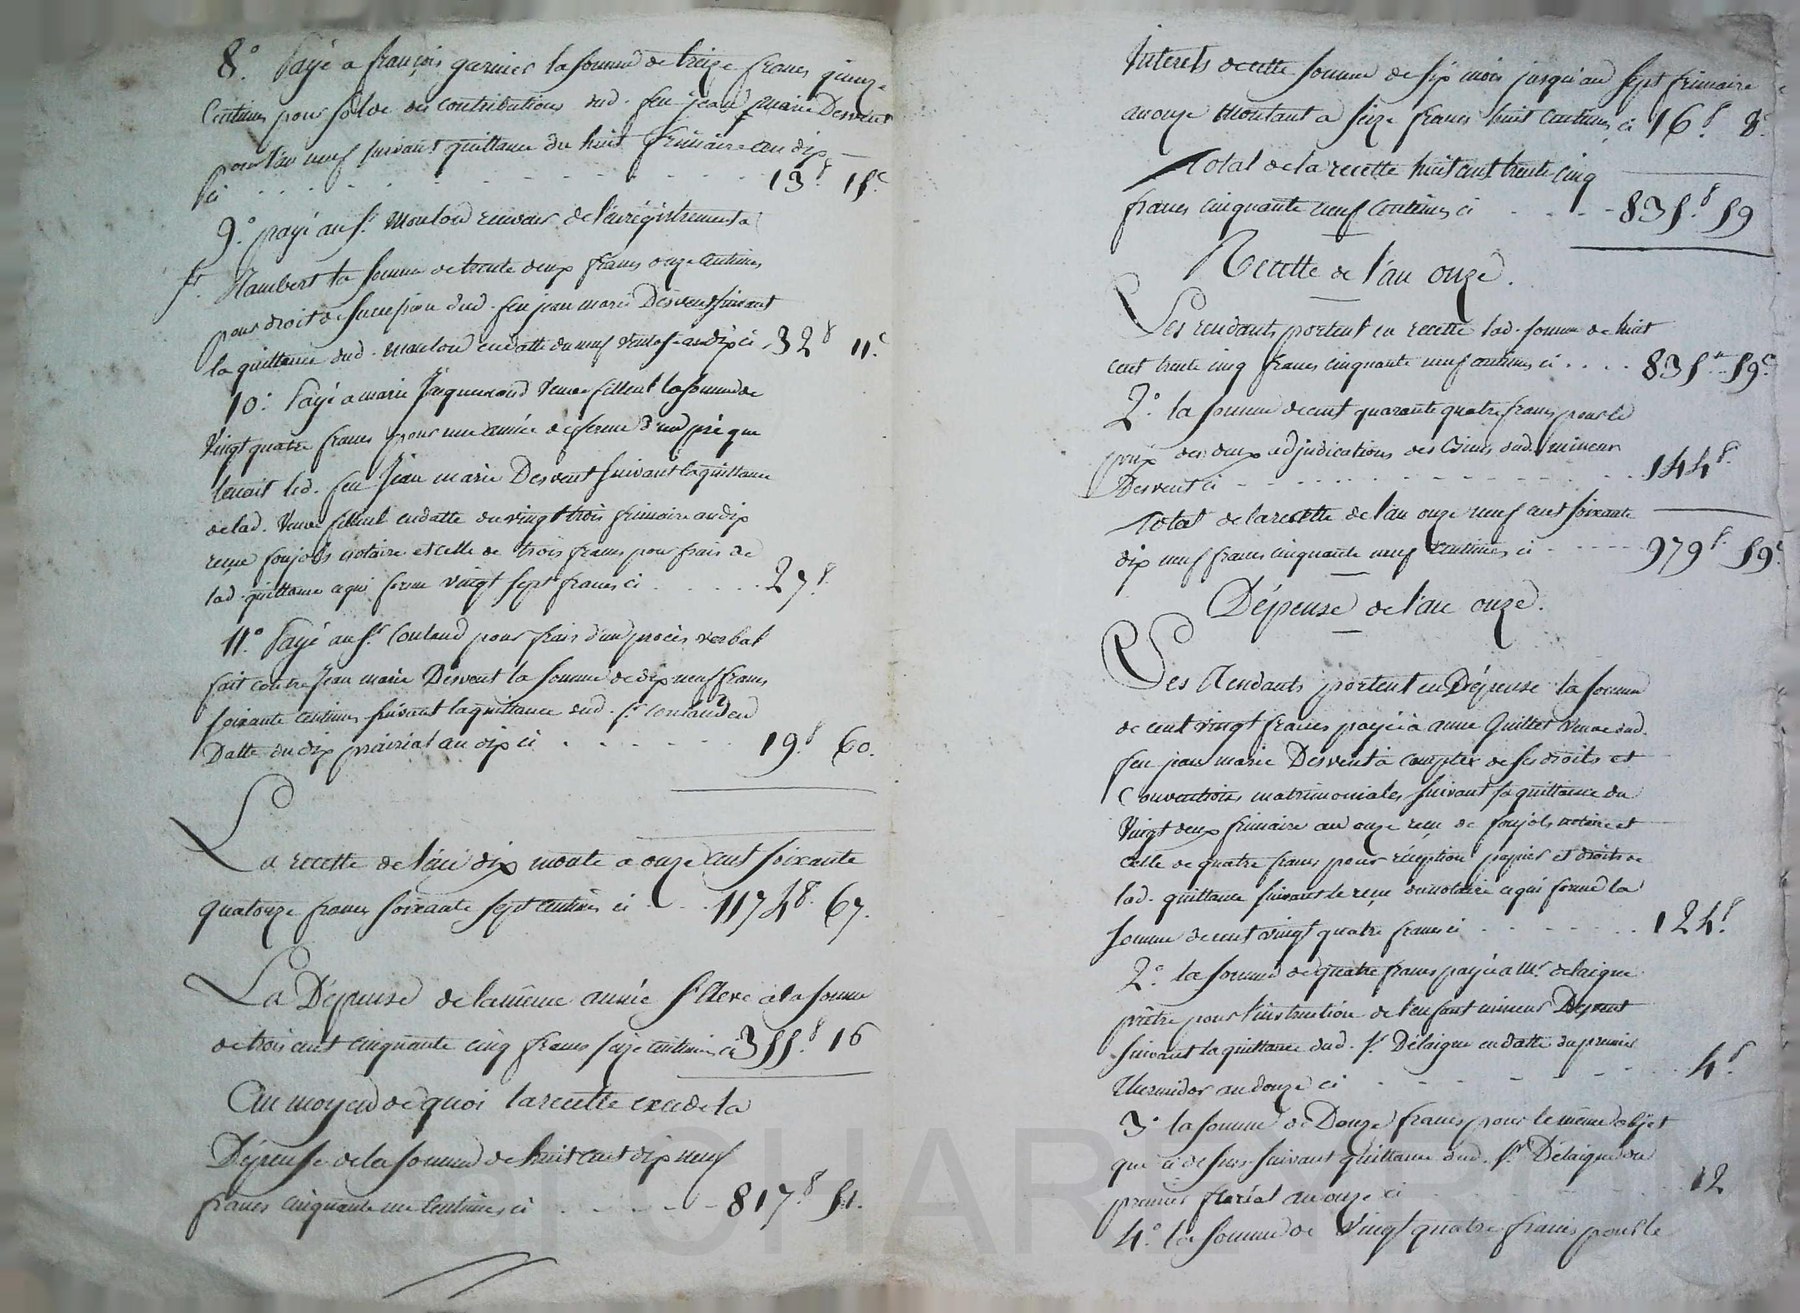 8.° Payé a françois garnier la somme de treize francs quinze
Centimes pour solde des contributions dud. feu jean marie Desvent
pour l'an neuf suivant quittance du huit frimaire an dix
ci . . . . . . . . . . 13.f 15.c
9.° payé au Sr. Moulou receveur de l'enregistrement a
St. Rambert la somme de trente deux francs onze centimes
pour droit de succession dud. feu jean marie Desvent suivant
la quittance dud. Moulou en datte du neuf ventose an dix ci . 32.f 11.c
10.° Payé a marie Jaquemond Veuve fillent la somme de
Vingt quatre francs pour une année de ferme d'un pré que
tenait led. feu Jean marie Desvent suivant la quittance
de lad. Veuve fillent en datte du vingt trois frimaire an dix
reçue foujols notaire et celle de trois francs pour frais de
lad. quittance ce qui forme vingt sept francs ci . . . . . 27.f
11.° Payé au Sr. Coulaud pour frais d'un procès verbal
fait contre Jean marie Desvent la somme de dix neuf francs
soixante centimes suivant la quittance dud. Sr. Coulaud en
Datte du dix prairial an dix ci . . . . . . 19.f 60.
La recette de l'an dix monte a onze cent soixante
quatorze francs soixante sept centimes ci . . . 1174.f 67.
La Dépense de la même année s'Eleve à la somme
de trois cent cinquante cinq francs seize centimes ci 355.f 16
Au moyen de quoi la recette excede la
Dépense de la somme de huit cent dix neuf
francs cinquante un Centimes ci . . . . . 817.f 51.
Interets de cette somme de six mois jusqu'au sept frimaire
an onze Montant a seize francs huit centimes ci 16.f 8.c
Total de la recette huit cent trente cinq
francs cinquante neuf centimes ci . . . . 835.f 59
Recette de l'an onze.
Les rendants portent en recette lad. somme de huit
cent trente cinq francs cinquante neuf centimes ci . . . . 835.f 59.c
2.° la somme de cent quarante quatre francs pour le
prix des deux adjudications des Biens dud. mineur
Desvent ci . . . . . . . . . . . 144.f
Total de la recette de l'an onze neuf cent soixante
dix neuf francs cinquante neuf centimes ci . . . . . 979.f 59.c
Dépense de l'an onze.
Les Rendants portent en Dépense la somme
de cent vingt francs payée à anne Quillet Veuve dud.
feu jean marie Desvent à compter de ses droits et
Conventions matrimoniales suivant sa quittance du
Vingt deux frimaire an onze reçue de foujols notaire et
celle de quatre francs pour réception papier et droits de
lad. quittance suivant le reçu du notaire ce qui forme la
somme de cent vingt quatre francs ci . . . . . . . . 124.f
2.° la somme de quatre francs payée a Mr. delaigue
prêtre pour l'instruction de l'enfant mineur Desvent
suivant la quittance dud. Sr. Délaigue en datte du premier
thermidor an douze ci . . . . . . . . . 4.f
3.° la somme de Douze francs pour le même objet
que ci dessus suivant quittance dud. Sr. Délaigue du
premier floréal an onze ci . . . . . . . . . 12
4.° la somme de Vingt quatre francs pour le